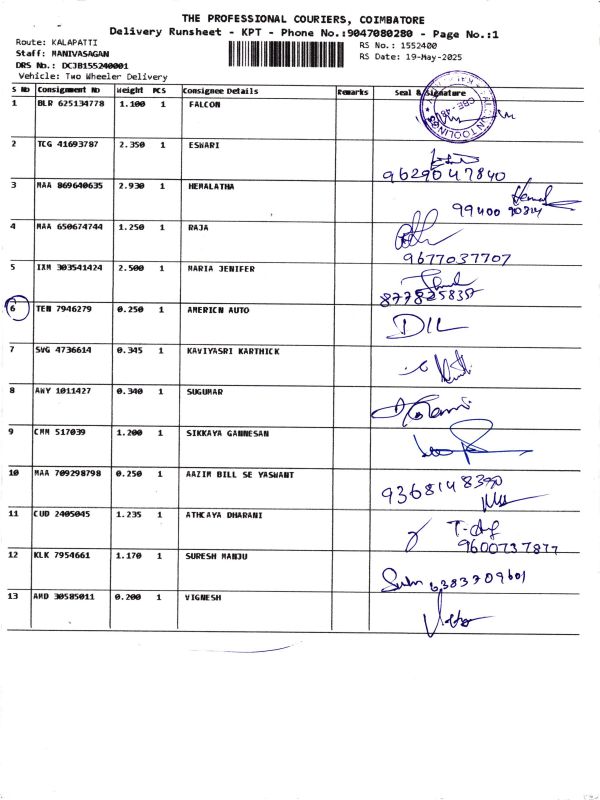 THE PROFESSIONAL COURIERS, COIMBATORE
Delivery Runsheet - KPT - Phone No.:9047080280 - Page No.:1
Route: KALAPATTI
RS No.: 1552400
Staff: MANIVASAGAN
RS Date: 19-May-2025
DRS No.: DCJB155240001
Vehicle: Two Wheeler Delivery
S No Consignment No Weight PCS Consignee Details Remarks Seal & Signature
1 BLR 625134778 1.100 1 FALCON
2 TCG 41693787 2.350 1 ESWARI
9629047840
3 MAA 869640635 2.930 1 HEMALATHA
99400 90314
4 MAA 650674744 1.250 1 RAJA
9677037707
5 IXM 303541424 2.500 1 MARIA JENIFER
6 TEN 7946279 0.250 1 AMERICN AUTO
DIL
7 SVG 4736614 0.345 1 KAVIYASRI KARTHICK
8 ANY 1011427 0.340 1 SUGUMAR
9 CMM 517039 1.200 1 SIKKAYA GANNESAN
10 MAA 709298798 0.250 1 AAZIM BILL SE YASWANT
11 CUD 2405045 1.235 1 ATHCAYA DHARANI
9600737877
12 KLK 7954661 1.170 1 SURESH MANJU
6383709601
13 AMD 30585011 0.200 1 VIGNESH